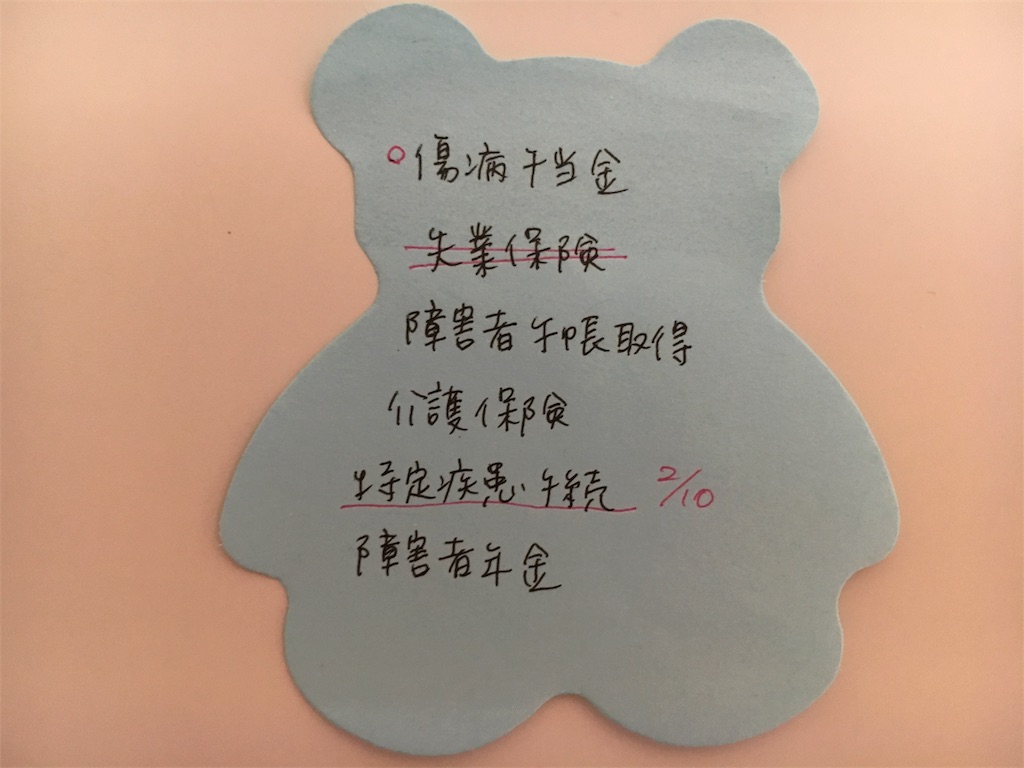 ○傷病手当金
失業保険
障害者手帳取得
介護保険
特定疾患手続 2/10
障害者年金